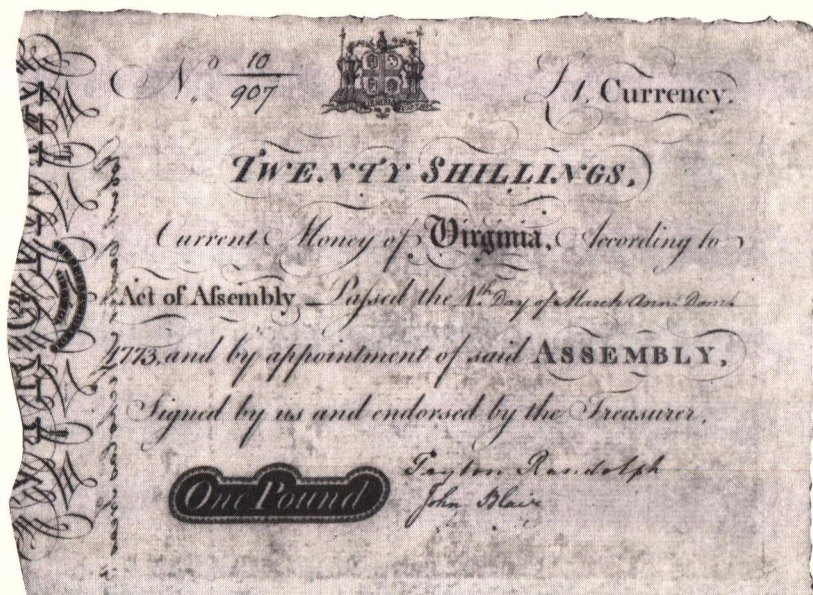 No. 10
907
£1, Currency.
TWENTY SHILLINGS,
Current Money of Virginia, According to
Act of Aſsembly Paſsed the 4th Day of March Anno Domi
1773, and by appointment of said ASSEMBLY,
Signed by us and endorsed by the Treasurer.
One Pound
Peyton Randolph
John Blair